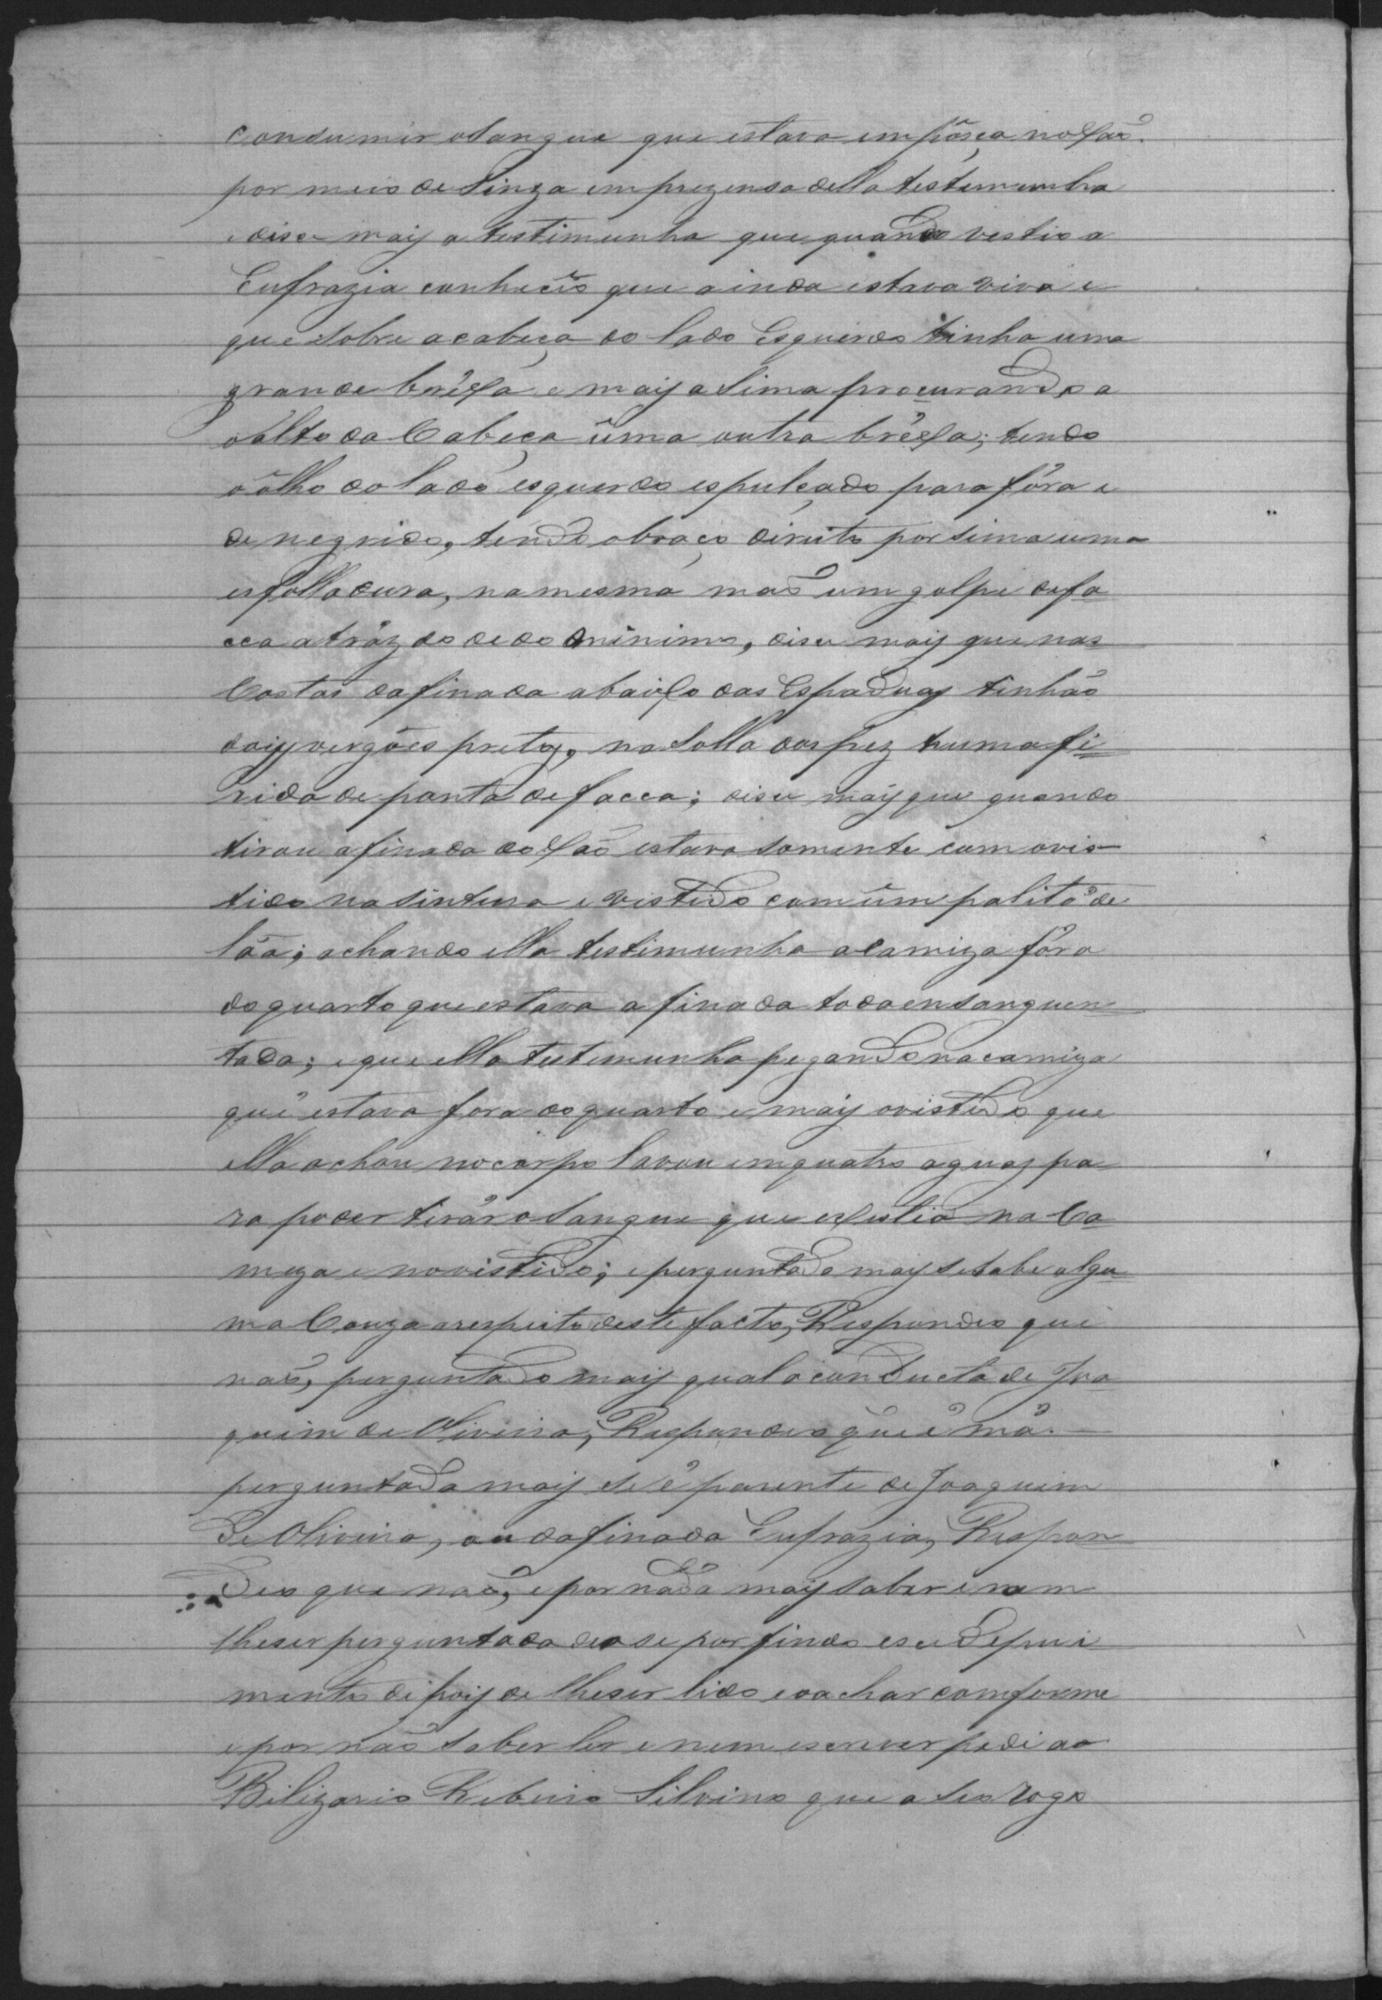 condumir o sangue que estava em pôsça no xaõ
por meio de Sinza em prezensa della testemunha
e dise mais a testimunha que quando vestio a
Eufrazia conheciõ que ainda estava viva e
que sobre a cabeça do lado Esquerdo tinha uma
grande bréxa e mais a sima procurando a
o alto da Cabeça uma outra bréxa; tendo
o ôlho do lado esquerdo espulçado para fóra e
denegrido, tendo o braço direito por sima uma
esfolladura, na mesma maõ um golpe de fa
cca atráz do dedo minimo, dise mais que nas
Costas da finada abaixo das Espaduas tinhaõ
dois vergões pretos, na solla dos pez huma fi
rida de ponta de facca; dise mais que quando
tirou a finada do xaõ estava somente com o vis-
tido na sintura e vistido com um palitó de
láa; achando ella testimunha a Camiza fóra
do quarto que estava a finada toda ensanguen
tada; e que ella testemunha pegando na camiza
que estava fora do quarto e mais o vistido que
ella achou no corpo lavou em quatro aguas pa
ra poder tirár o sangue que existia na Ca
miza e no vistido; e perguntado mais se sabe algu
ma Couza a respeito deste facto, Respondeo que
naõ, perguntado mais qual a conducta de Joa
quim de Oliveira, Respondeo que é má.
perguntada mais se é parente de Joaquim
de Oliveira, ou da finada Eufrazia, Respon
deo que naõ, e por nada mais saber e nem
lhe ser perguntada deo se por findo eseu depui
mento depois de lhe ser lido e o achar comforme
e por naõ saber ler e nem escrever pedi ao
Bilizario Rebeiro Silvino que a seo rogo